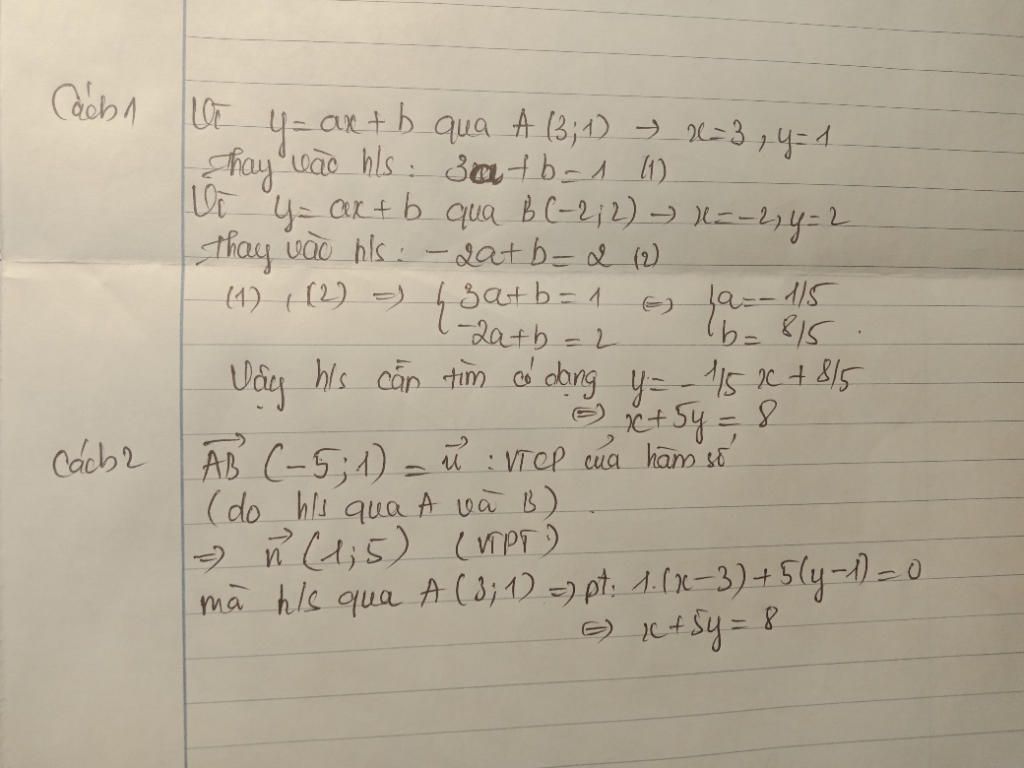 Cách 1
Vì y = ax + b qua A (3;1) → x=3, y=1
Thay vào h/s : 3a + b = 1 (1)
Vì y = ax + b qua B (-2;2) → x=-2, y=2
Thay vào h/s : -2a + b = 2 (2)
(1), (2) => { 3a + b = 1 <=> { a = -1/5
-2a + b = 2 b = 8/5 .
Vậy h/s cần tìm có dạng y = -1/5 x + 8/5
<=> x + 5y = 8
Cách 2
AB→ (-5;1) = u→ : VTCP của hàm số
(do h/s qua A và B) .
=> n→ (1;5) (VTPT)
mà h/s qua A (3;1) => pt: 1.(x-3) + 5(y-1) = 0
<=> x + 5y = 8